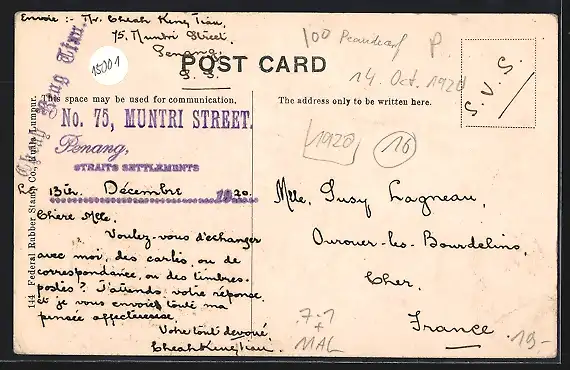 Envoie :- Mr. Cheah Keng Tiau,
75, Muntri Street,
Penang.
S. S.
15001
POST CARD
100
P.
14. Oct. 1920
S. V. S.
This space may be used for communication.
The address only to be written here.
No. 75, MUNTRI STREET,
Penang,
STRAITS SETTLEMENTS
13th. Décembre 1920.
Chère Mlle.
Voulez-vous d'echanger
avec moi, des cartes, ou de
correspondance, ou des timbres-
postes? J'attends, votre réponse,
et je vous envoies toute ma
pensée affectueuse.
Votre tout devoué.
CheahKengTiau.
1920
16
Mlle. Susy Lagneau,
Ourouer-les-Bourdelins,
Cher.
France
7.1
+
MAL
19-
144 Federal Rubber Stamp Co., Kuala Lumpur.